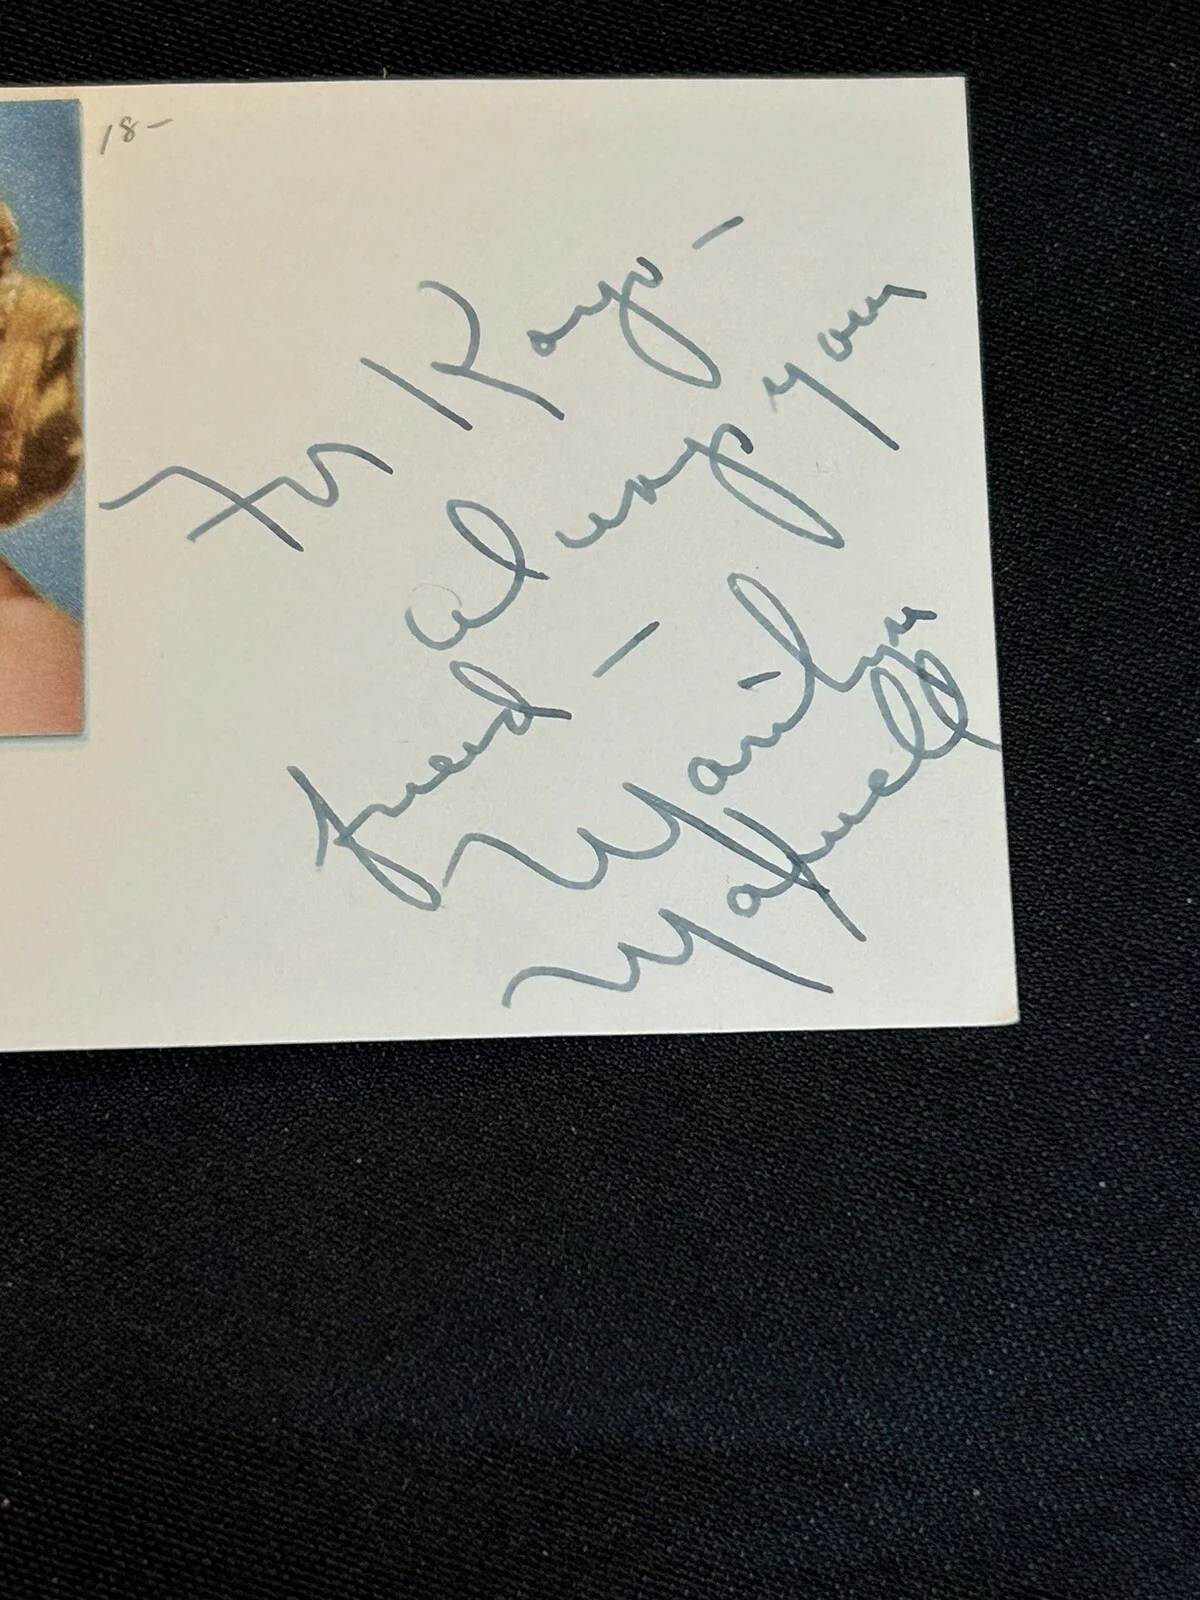 18-
For Kayo-
always your
friend -
Marilyn
Maxwell